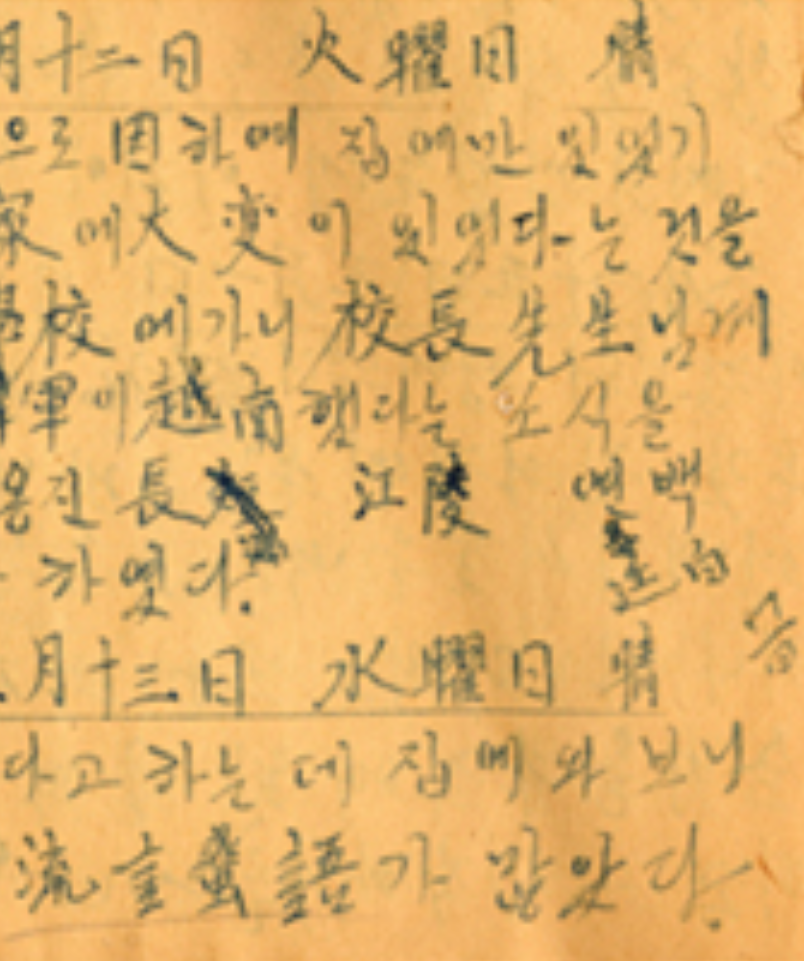 月十二日 火曜日 晴
으로 因하여 집에만 있었기
家에 大変이 있었다는 것을
學校에 가니 校長先生님게
軍이 越南했다는 소식을
옹진 長 江陵 연백
하였다. 延白
月十三日 水曜日 晴
다고 하는데 집에 와 보니
流言蜚語가 많았다.